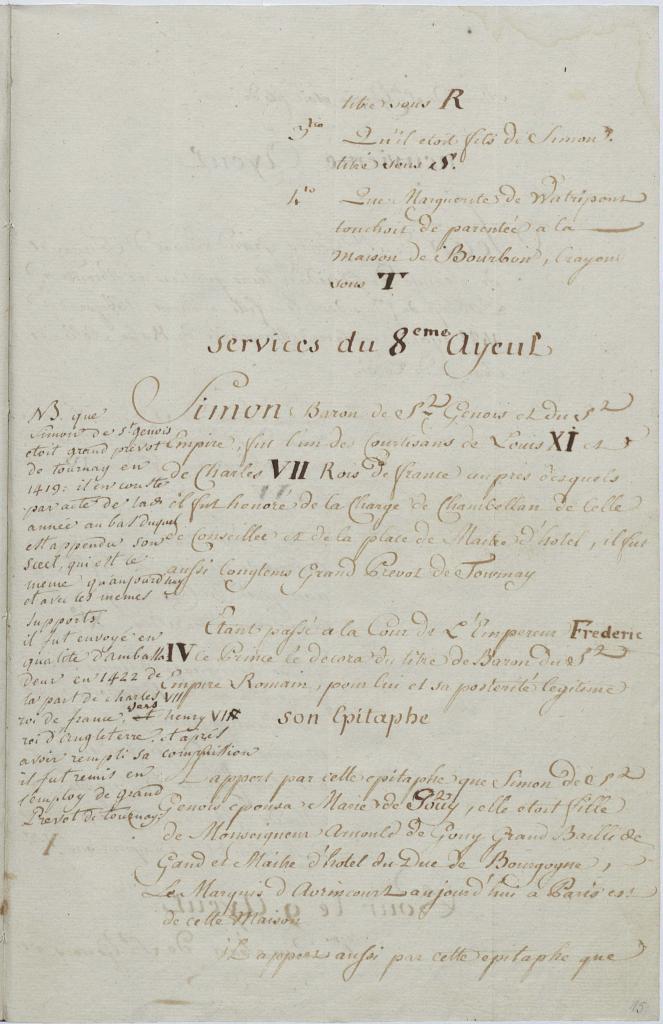 titre sous R
3tio Qu'il etoit fils de Simon 2.
titre sous S.
4to Que Marguerite de Watripont
touchoit de parentée a la
Maison de Bourbon, Crayon
sous T
Services du 8eme Ayeul
Simon Baron de St Genois et du St
Empire, fut l'un des Courtisans de Louis XI et
de Charles VII Rois de france aupres desquels
il fut honoré de la Charge de Chambellan de Celle
de Conseiller et de la place de Maitre d'hotel, il fut
aussi longtems Grand Prevot de Tournay
Etant passé a la Cour de L'Empereur Frederic
IV ce Prince le decora du titre de Baron du St
Empire Romain, pour lui et sa posterité legitime
son Epitaphe
Il appert par cette epitaphe que Simon de St
Genois epousa Marie de Gouy, elle etoit fille
de Monseigneur Arnould de Gouy Grand Bailli de
Gand et Maitre d'hotel du Duc de Bourgogne,
Le Marquis d'Avrincourt aujourd'hui à Paris est
de cette Maison
il appert aussi par cette epitaphe que
NB. que
Simon de St genois
etoit grand prevot
de tournay en
1419: il en conste
par acte de lade
année au bas duquel
est appendu son
scel, qui est le
meme qu'aujourd'huy
et avec les memes
supports.
il fut envoyé en
qualité d'ambassa
deur en 1422 de
la part de charles VII
roi de france vers henry VI
roi d'Angleterre. et après
avoir rempli sa commission
il fut remis en
l'employ de grand
Prevot de tournay.
15